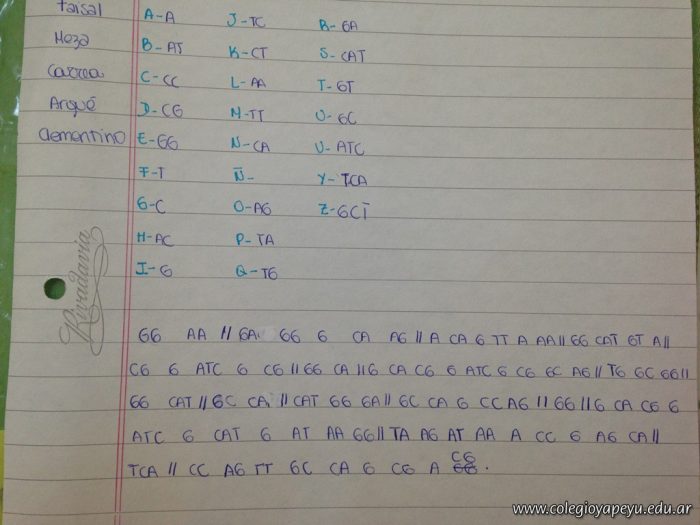 Faisal
Meza
Correa
Arqué
Clementino
A-A J-TC R-GA
B-AT K-CT S-CAT
C-CC L-AA T-GT
D-CG M-TT U-GC
E-GG N-CA V-ATC
F-T Ñ- Y-TCA
G-C O-AG Z-GCT
H-AC P-TA
I-G Q-TG
Rivadavia
GG AA // GA GG G CA AG // A CA G TT A AA // GG CAT GT A //
CG G ATC G CG // GG CA // G CA CG G ATC G CG GC AG // TG GC GG //
GG CAT // GC CA // CAT GG GA // GC CA G CC AG // GG // G CA CG G
ATC G CAT G AT AA GG // TA AG AT AA A CC G AG CA //
TCA // CC AG TT GC CA G CG A CG.
www.colegioyapeyu.edu.ar